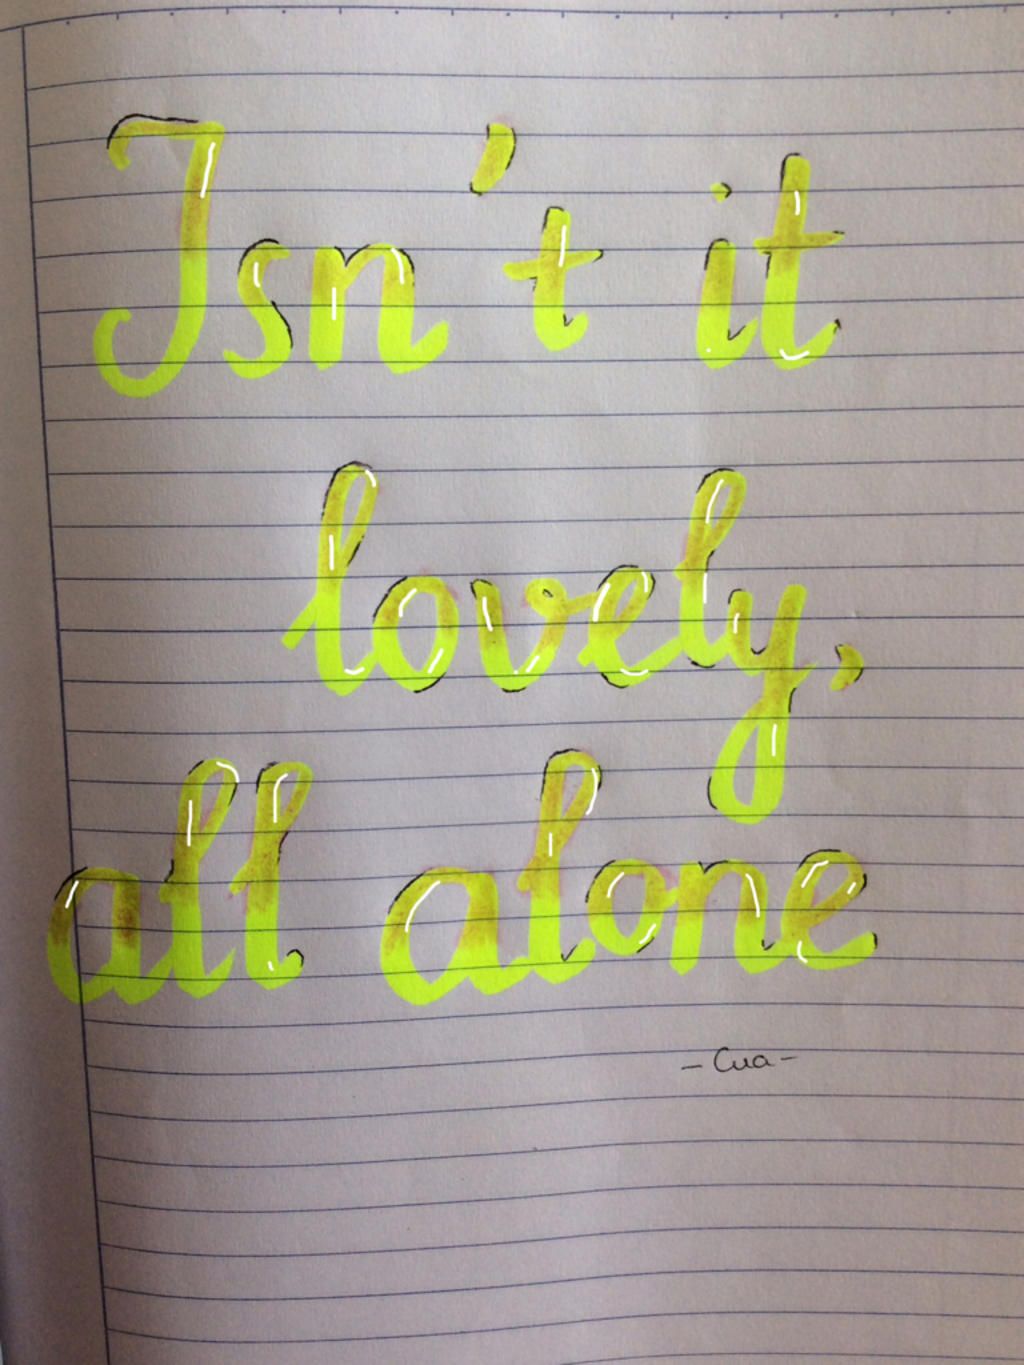 Isn't it
lovely,
all alone
- Cua -